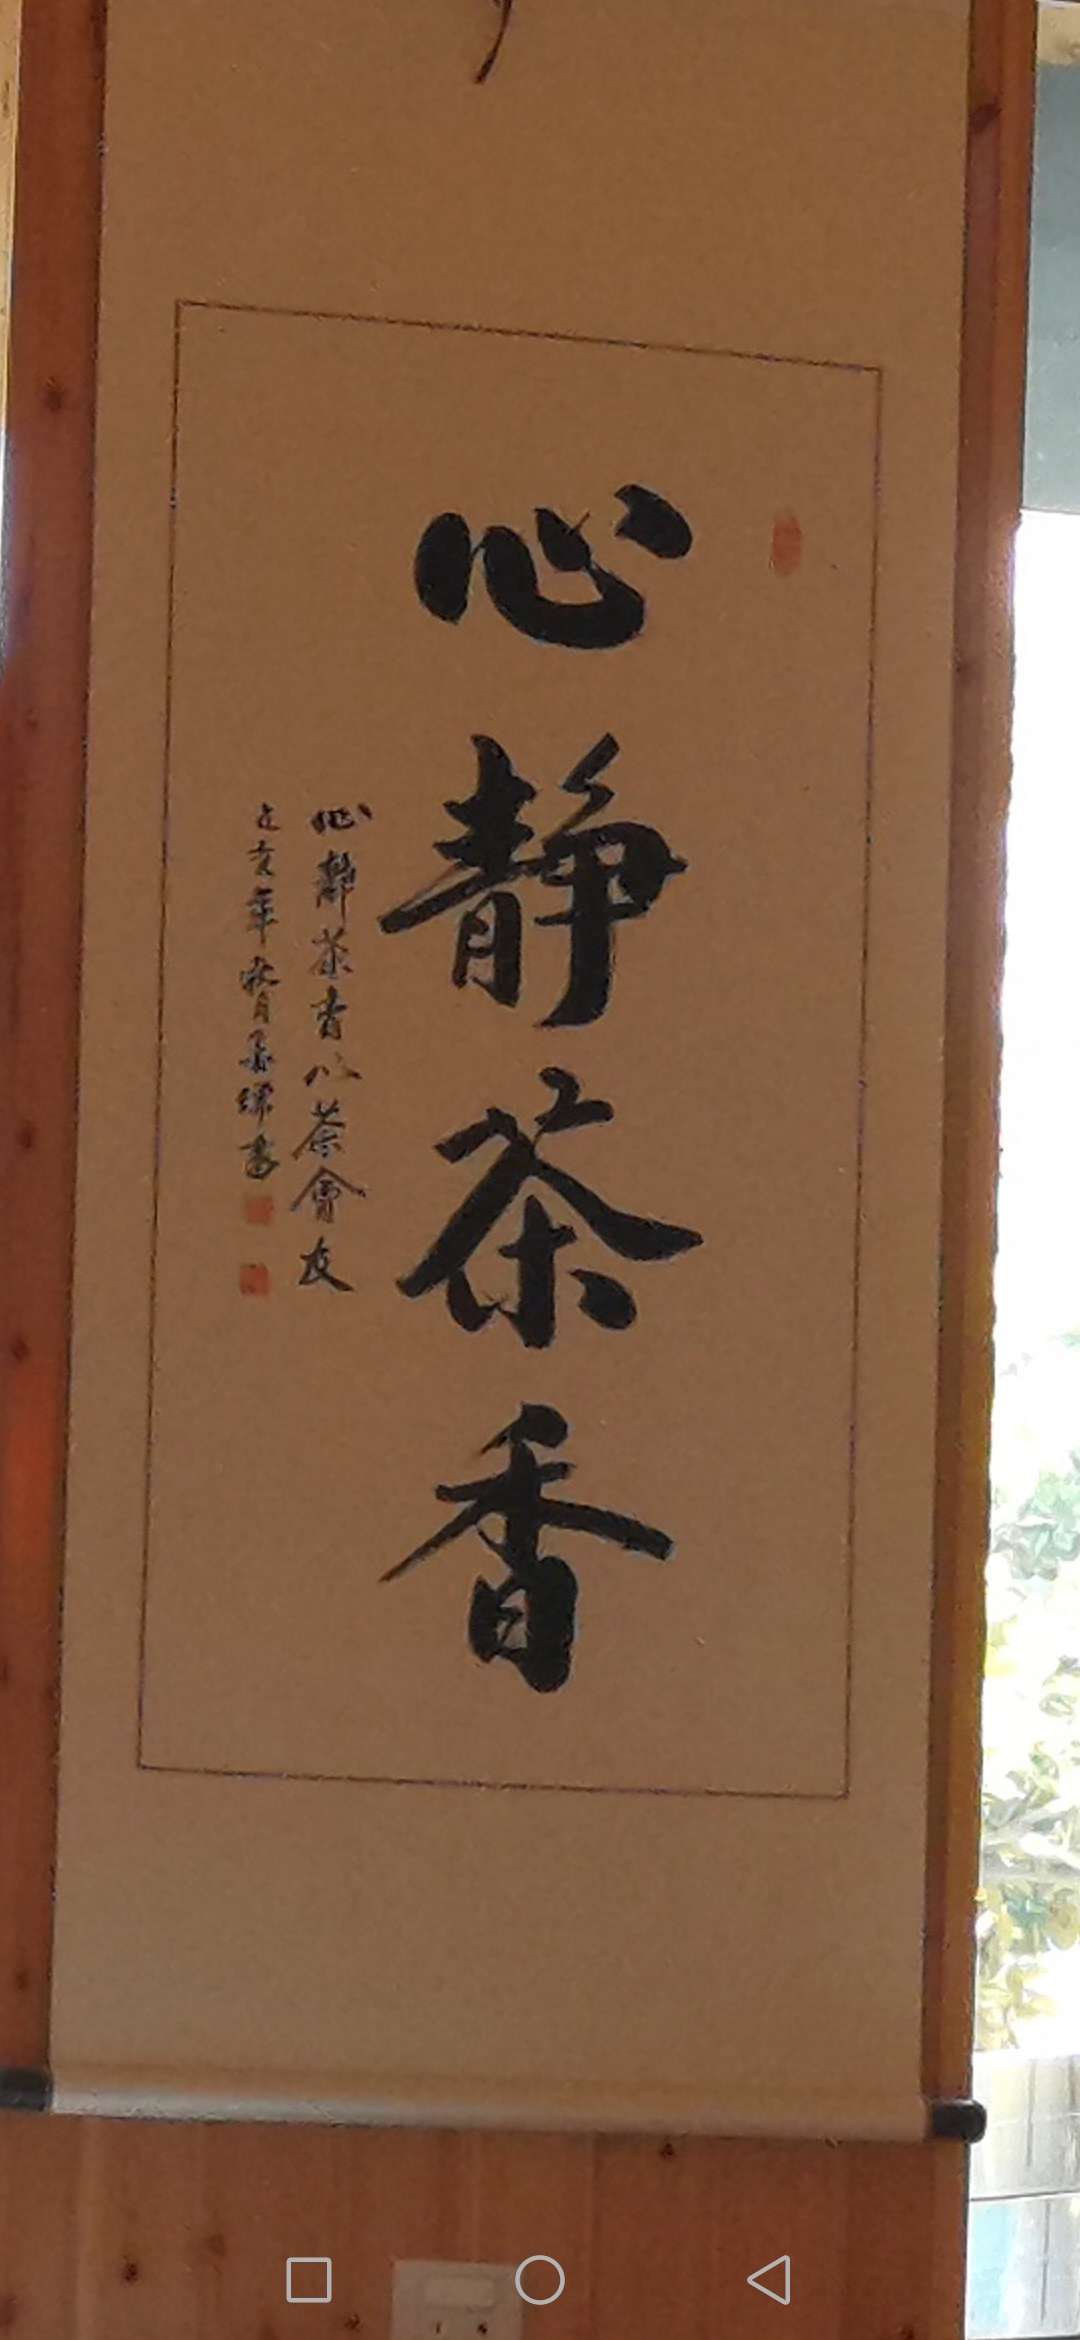 心静茶香
心静茶香以茶會友
亥年秋月
書